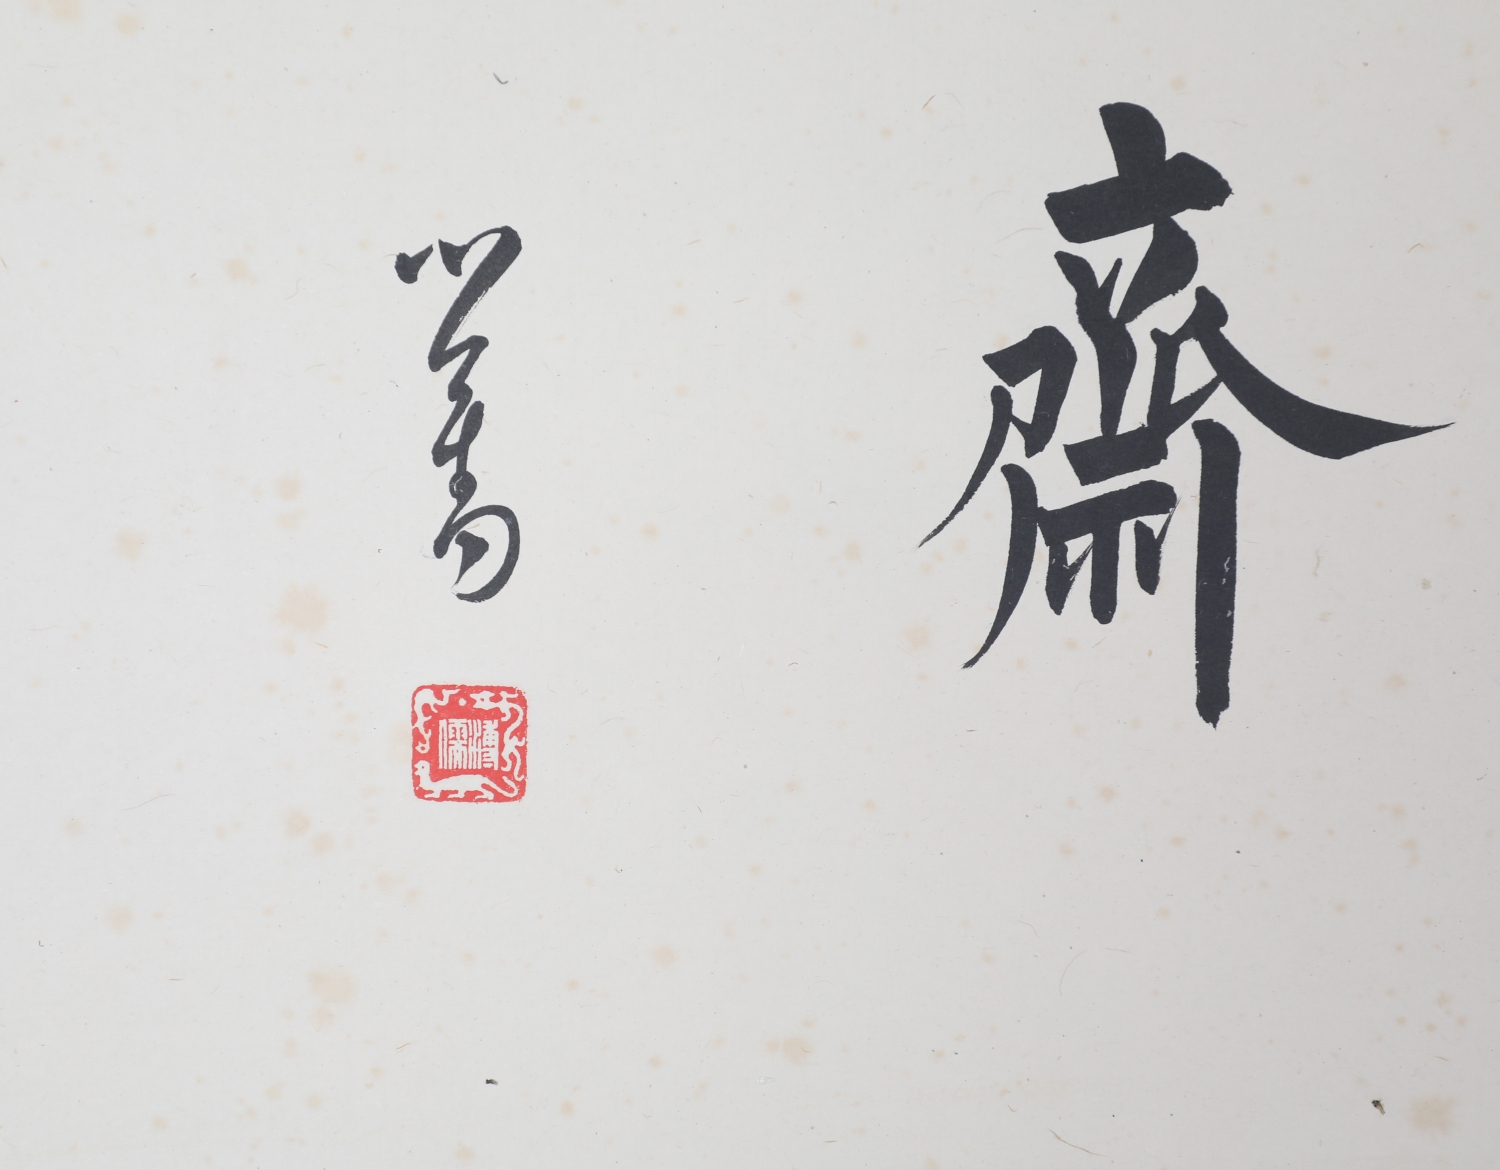 齋
心畬
溥儒